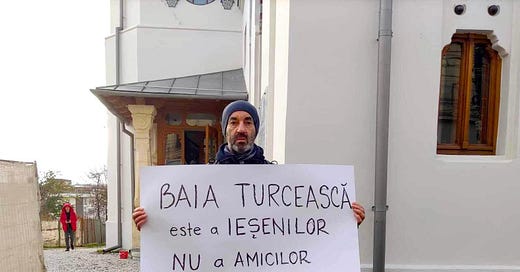 BAIA TURCEASCĂ
este a IEȘENILOR
NU a AMICILOR